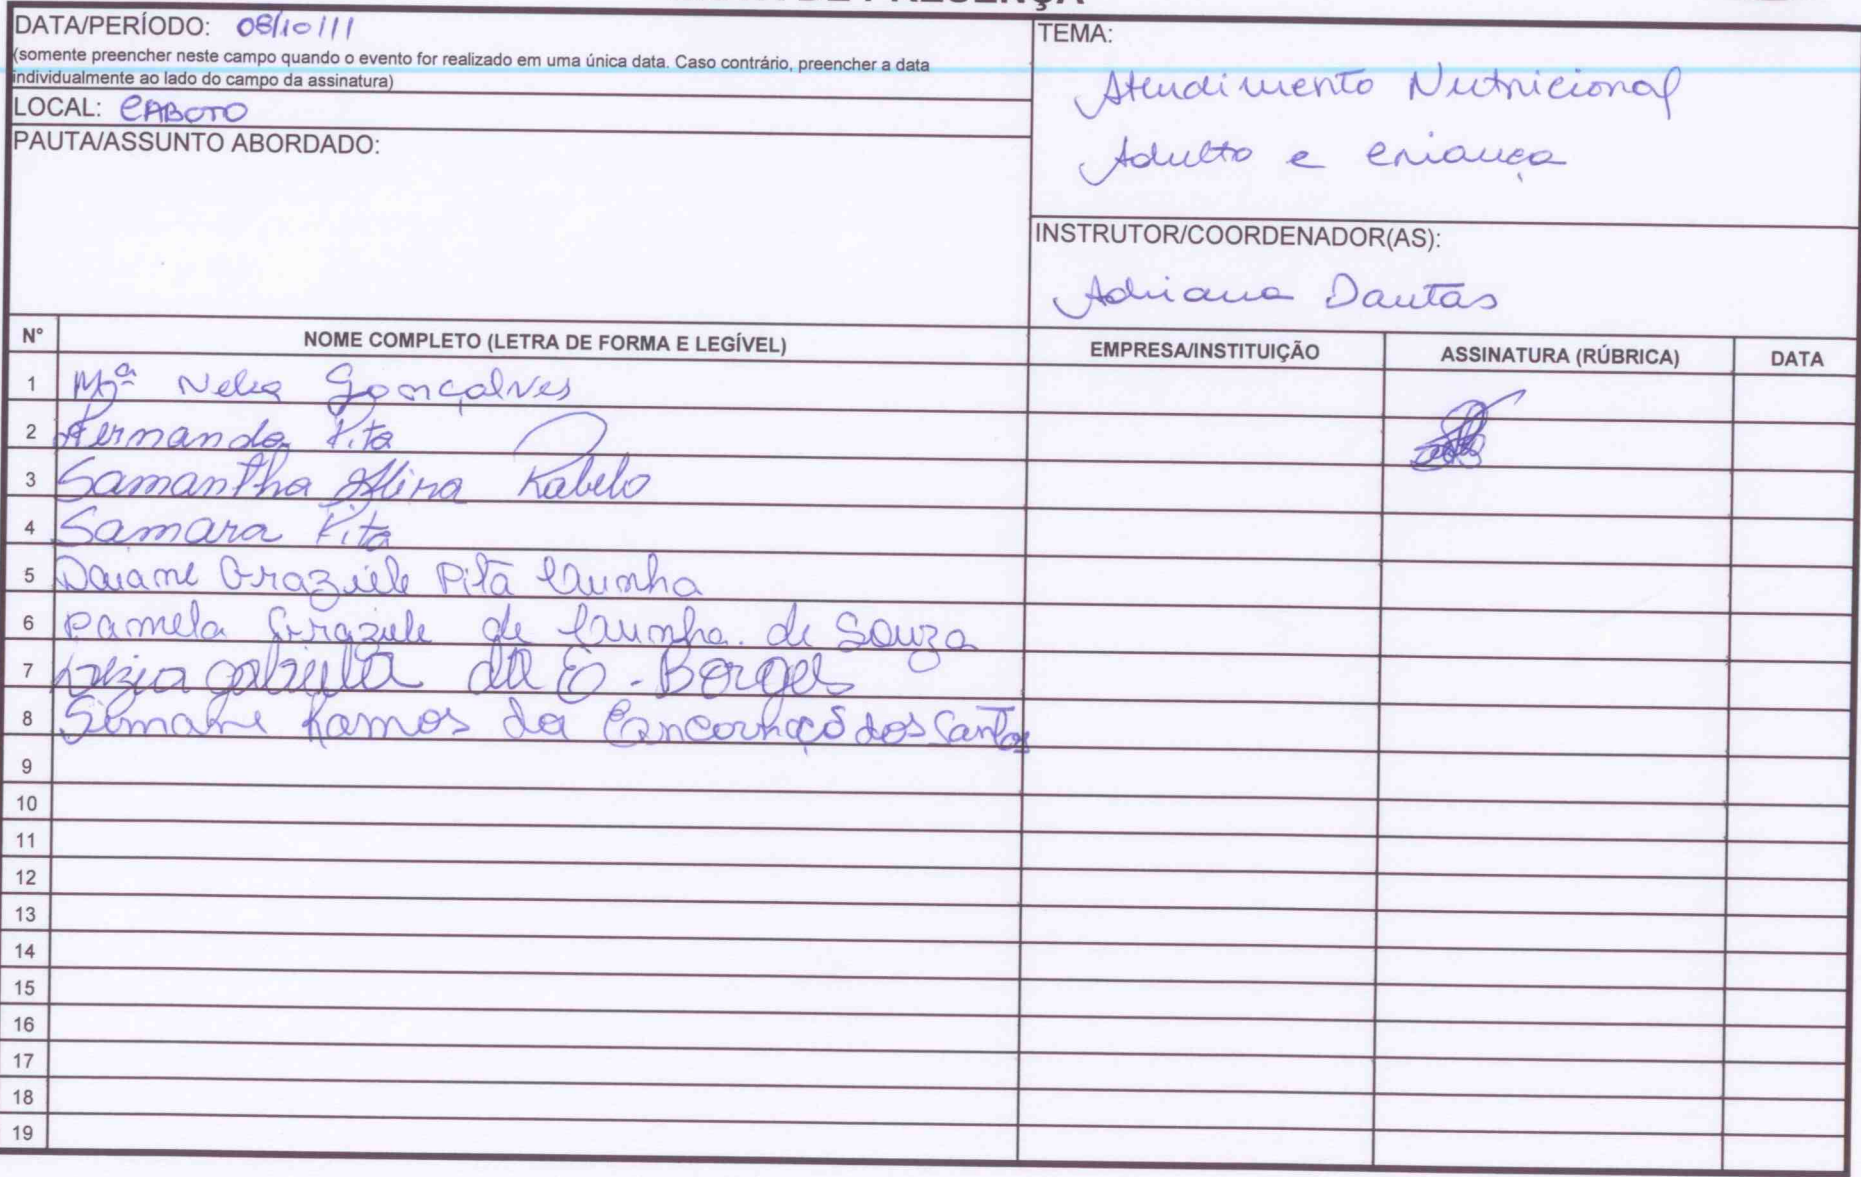 DE PRESENÇA
DATA/PERÍODO: 08/10/11
(somente preencher neste campo quando o evento for realizado em uma única data. Caso contrário, preencher a data
individualmente ao lado do campo da assinatura)
LOCAL: CABOTO
PAUTA/ASSUNTO ABORDADO:
TEMA:
Atendimento Nutricional
Adulto e criança
INSTRUTOR/COORDENADOR(AS):
Adriana Dantas
N° NOME COMPLETO (LETRA DE FORMA E LEGÍVEL) EMPRESA/INSTITUIÇÃO ASSINATURA (RÚBRICA) DATA
1 Mª Gonçalves
2 Fernanda Pita
3 Samantha Rabelo
4 Samara Pita
5 Daiane Graziele Pita Cunha
6 Pamela Grazule de Cunha de Souza
7 gabriela da E. Borges
8 Simane Ramos da dos Santos
9
10
11
12
13
14
15
16
17
18
19